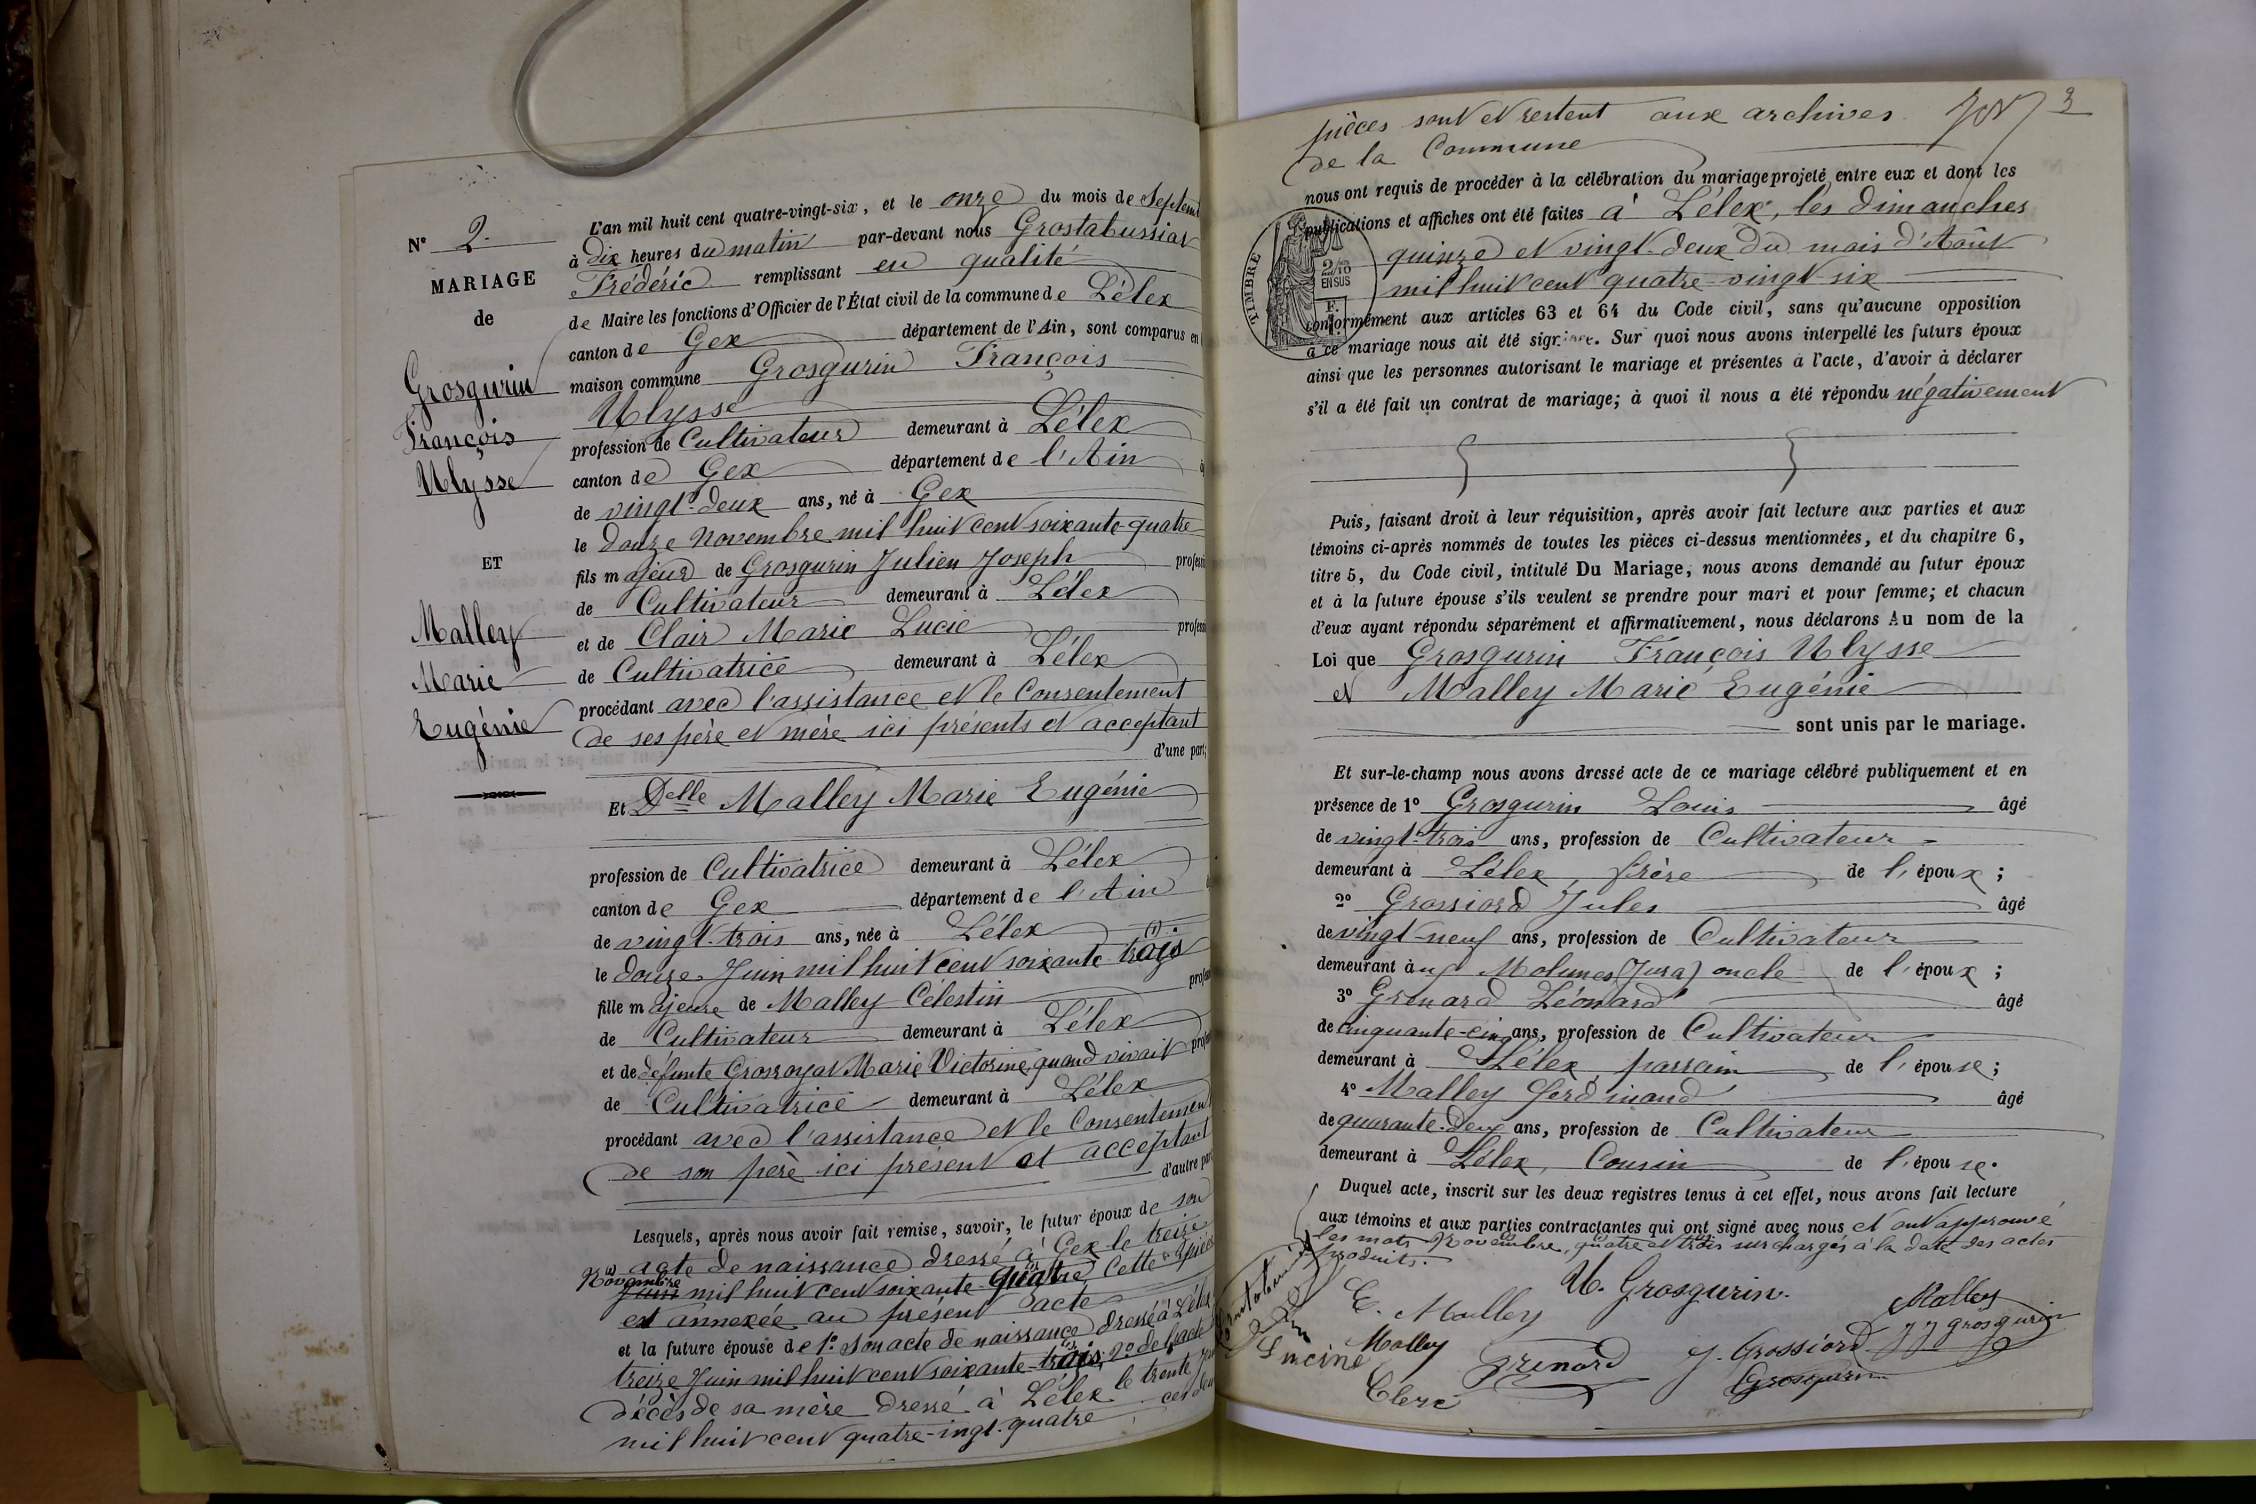 N° 2.
MARIAGE
de
Grosgurin
François
Ulysse
ET
Malley
Marie
Eugénie
L'an mil huit cent quatre-vingt-six, et le onze du mois de Septem
à dix heures du matin par-devant nous Grostabussiat
Frédéric remplissant en qualité
de Maire les fonctions d'Officier de l'État civil de la commune de Lélex
canton de Gex département de l'Ain, sont comparus en
maison commune Grosgurin François
Ulysse
profession de Cultivateur demeurant à Lélex
canton de Gex département de l'Ain
de vingt-deux ans, né à Gex
le douze Novembre mil huit cent soixante-quatre
fils majeur de Grosgurin Julien Joseph profess
de Cultivateur demeurant à Lélex
et de Clair Marie Lucie profess
de Cultivatrice demeurant à Lélex
procédant avec l'assistance et le Consentement
de ses père et mère ici présents et acceptant
d'une part;
Et Delle Malley Marie Eugénie
profession de Cultivatrice demeurant à Lélex
canton de Gex département de l'Ain
de vingt-trois ans, née à Lélex (1)
le douze Juin mil huit cent soixante trois
fille majeure de Malley Célestin profes
de Cultivateur demeurant à Lélex
et de défunte Grosroyat Marie Victorine, quand vivait prof
de Cultivatrice demeurant à Lélex
procédant avec l'assistance et le Consentement
de son père ici présent et acceptant
d'autre par
Lesquels, après nous avoir fait remise, savoir, le futur époux de son
acte de naissance dressé à Gex le treize
Novembre
Juin mil huit cent soixante-quatre Cette pièce
est annexée au présent acte
et la future épouse de 1° Son acte de naissance dressé à Lélex
treize Juin mil huit cent soixante-trois, 2° de l'acte
décès de sa mère dressé à Lélex le trente
mil huit cent quatre-vingt-quatre ces deu
pièces sont et restent aux archives 3
de la Commune
nous ont requis de procéder à la célébration du mariage projeté entre eux et dont les
publications et affiches ont été faites à Lélex, les dimanches
quinze et vingt-deux du mois d'Août
mil huit cent quatre-vingt six
TIMBRE
2/10
EN SUS
F.
conformément aux articles 63 et 64 du Code civil, sans qu'aucune opposition
à ce mariage nous ait été signifiée. Sur quoi nous avons interpellé les futurs époux
ainsi que les personnes autorisant le mariage et présentes à l'acte, d'avoir à déclarer
s'il a été fait un contrat de mariage; à quoi il nous a été répondu négativement
Puis, faisant droit à leur réquisition, après avoir fait lecture aux parties et aux
témoins ci-après nommés de toutes les pièces ci-dessus mentionnées, et du chapitre 6,
titre 5, du Code civil, intitulé Du Mariage, nous avons demandé au futur époux
et à la future épouse s'ils veulent se prendre pour mari et pour femme; et chacun
d'eux ayant répondu séparément et affirmativement, nous déclarons Au nom de la
Loi que Grosgurin François Ulysse
et Malley Marie Eugénie
sont unis par le mariage.
Et sur-le-champ nous avons dressé acte de ce mariage célébré publiquement et en
présence de 1° Grosgurin Louis âgé
de vingt-trois ans, profession de Cultivateur
demeurant à Lélex, frère de l'époux;
2° Grossiord Jules âgé
de vingt-neuf ans, profession de Cultivateur
demeurant aux Molunes (Jura) oncle de l'époux;
3° Grenard Léonard âgé
de cinquante-cinq ans, profession de Cultivateur
demeurant à Lélex, parrain de l'épouse;
4° Malley Ferdinand âgé
de quarante-deux ans, profession de Cultivateur
demeurant à Lélex, Cousin de l'épouse.
Duquel acte, inscrit sur les deux registres tenus à cet effet, nous avons fait lecture
aux témoins et aux parties contractantes qui ont signé avec nous et ont approuvé
les mots Novembre, quatre et trois surchargés à la date des actes
produits.
U. Grosgurin.
E. Malley
Malley
Malley
J J grosgurin
J. Grossiord
Grenard
Grosgurin
Lucine
Clerc